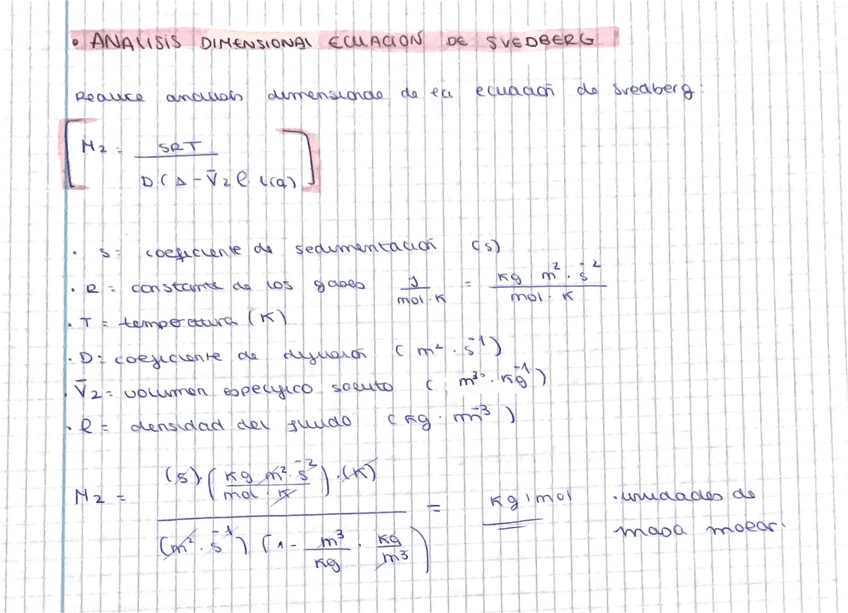 • ANALISIS DIMENSIONAL ECUACION DE SVEDBERG
Realice analisis dimensional de la ecuación de Svedberg:
M2 = SRT / D(1 - V̄2 ρ L(a))
· s = coeficiente de sedimentación (s)
· R = constante de los gases J / mol·K = kg · m² · s⁻² / mol · K
· T = temperatura (K)
· D: coeficiente de difusión (m² · s⁻¹)
· V̄2 = volumen específico soluto (m³ · kg⁻¹)
· ρ = densidad del fluido (kg · m⁻³)
M2 = (s) (kg m² · s⁻² / mol · K) · (K) / (m² · s⁻¹) (1 - m³/kg · kg/m³) = kg/mol · unidades de
masa molar.